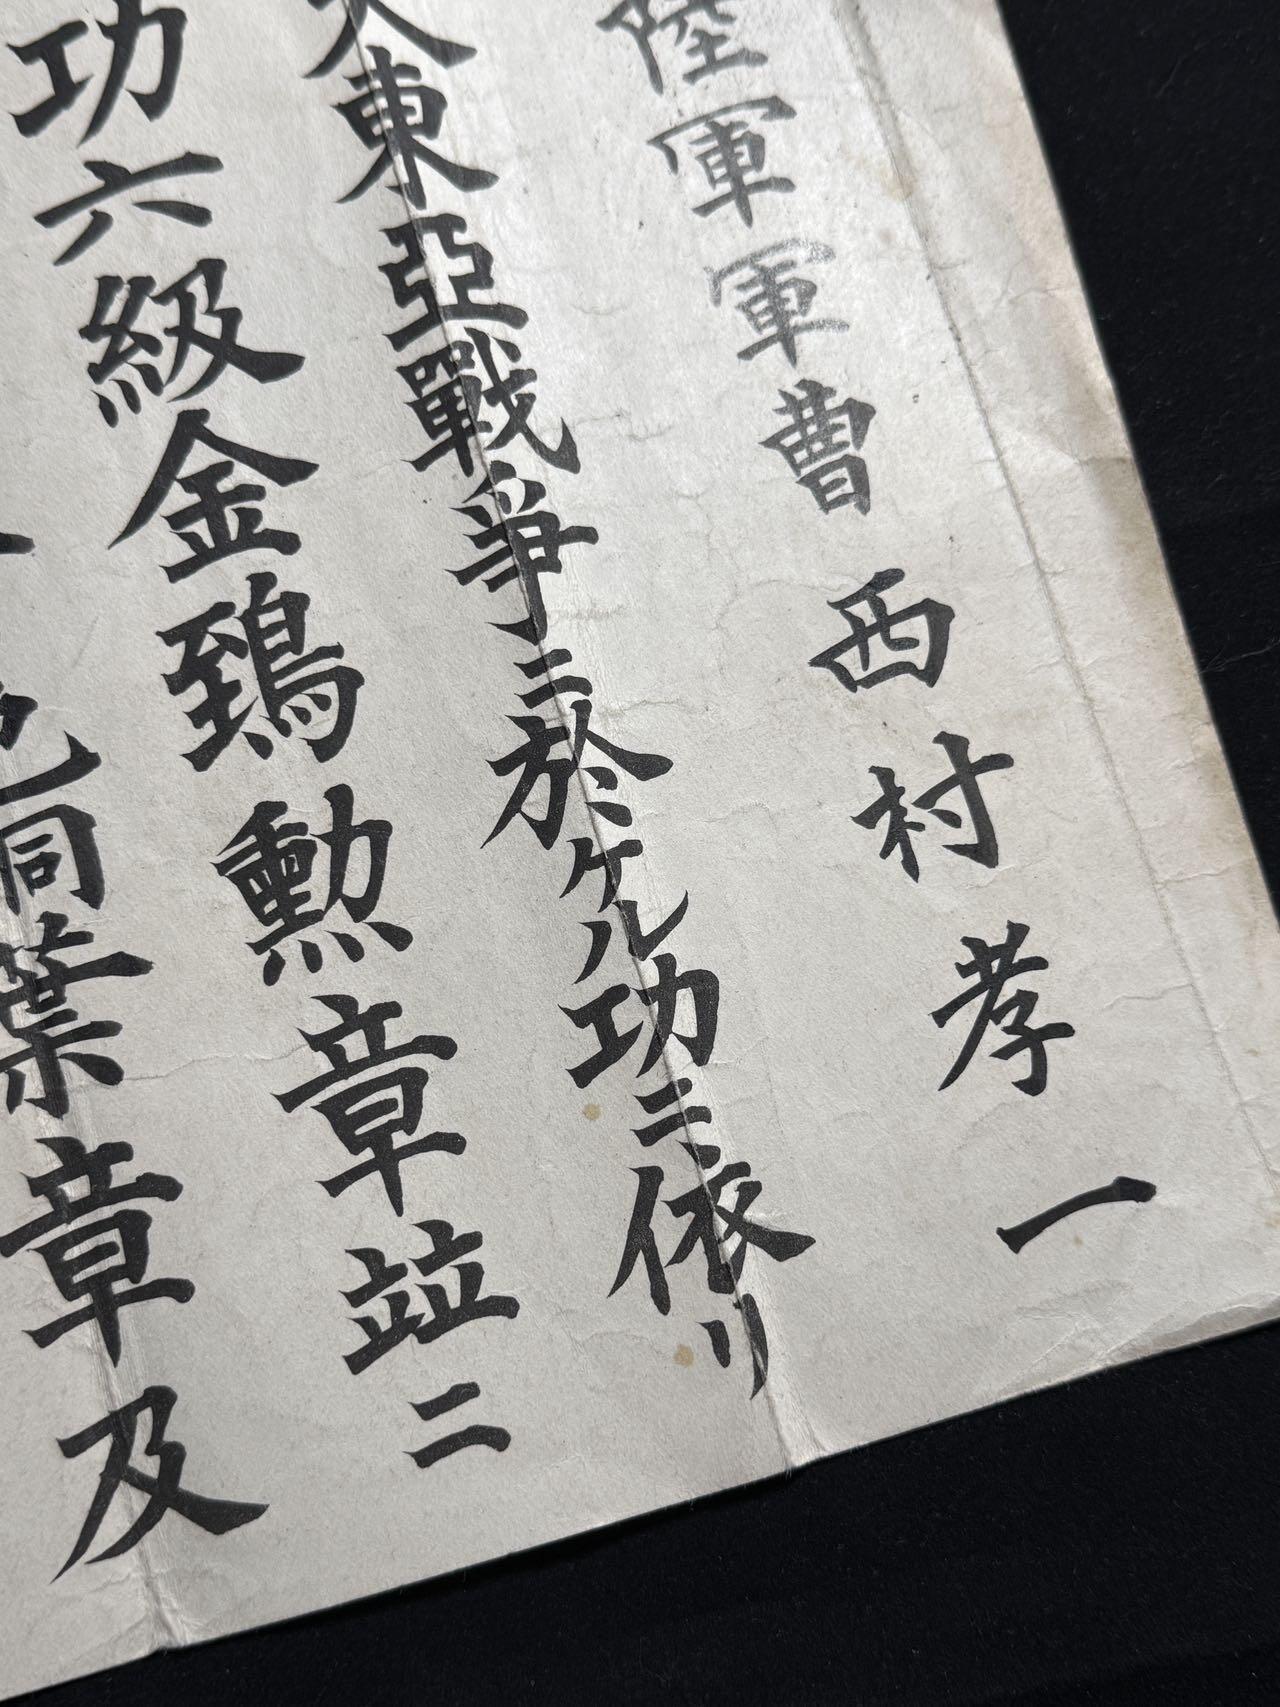 陸軍軍曹 西村孝一
大東亞戰爭ニ於ケル功ニ依リ
功六級金鵄勲章竝ニ
色桐葉章及